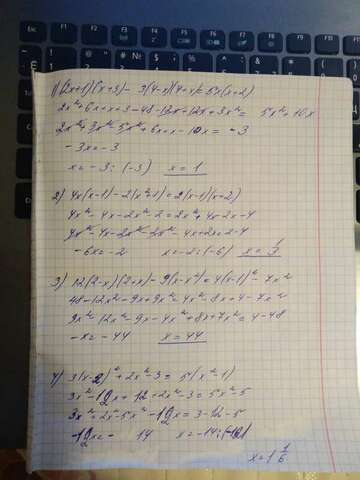 1) (2x+1)(x+3) - 3(4-x)(4+x) = 5x(x+2)
2x²+6x+x+3-48-12x+12x+3x² = 5x²+10x
2x²+3x²-5x²+6x+x-10x = -3
-3x=-3
x=-3:(-3) x=1
2) 4x(x-1)-2(x²+1)=2(x-1)(x+2)
4x²-4x-2x²-2=2x²+4x-2x-4
4x²-4x-2x²-2x²-4x+2x=2-4
-6x=-2 x=-2:(-6) x=1/3
3) 12(2-x)(2+x)-9(x-x²)=4(x-1)²-7x²
48-12x²-9x+9x²=4x²-8x+4-7x²
9x²-12x²-9x-4x²+8x+7x²=4-48
-x=-44 x=44
4) 3(x-2)²+2x²-3=5(x²-1)
3x²-12x+12+2x²-3=5x²-5
3x²+2x²-5x²-12x=3-12-5
-12x=-14 x=-14:(-12)
x=1 1/6